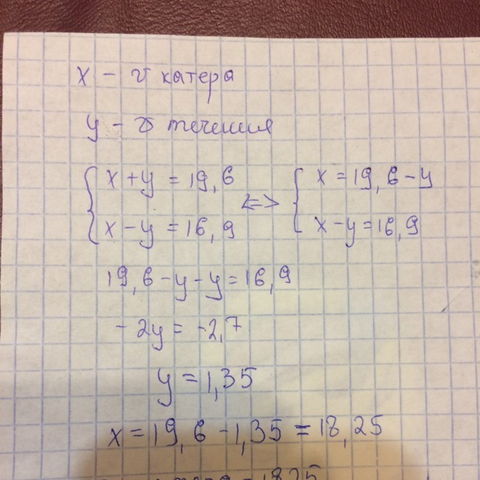 x – v катера
y – v течения
{ x + y = 19,6 <=> { x = 19,6 – y
{ x – y = 16,9 { x – y = 16,9
19,6 – y – y = 16,9
– 2y = –2,7
y = 1,35
x = 19,6 – 1,35 = 18,25